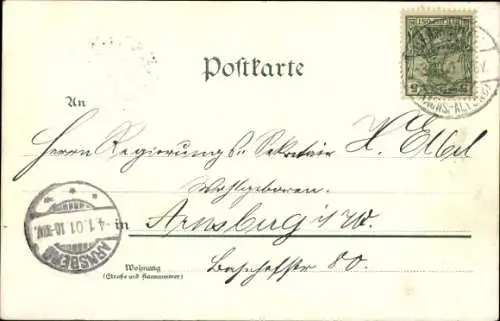 Postkarte
An
Herrn Regierungs-Sekretair H.
Wohlgeboren.
in Arnsberg i/W.
Wohnung
(Straße und Hausnummer)
Bahnhofstr 80.
ARNSBERG
-4.1.01.10-11V.